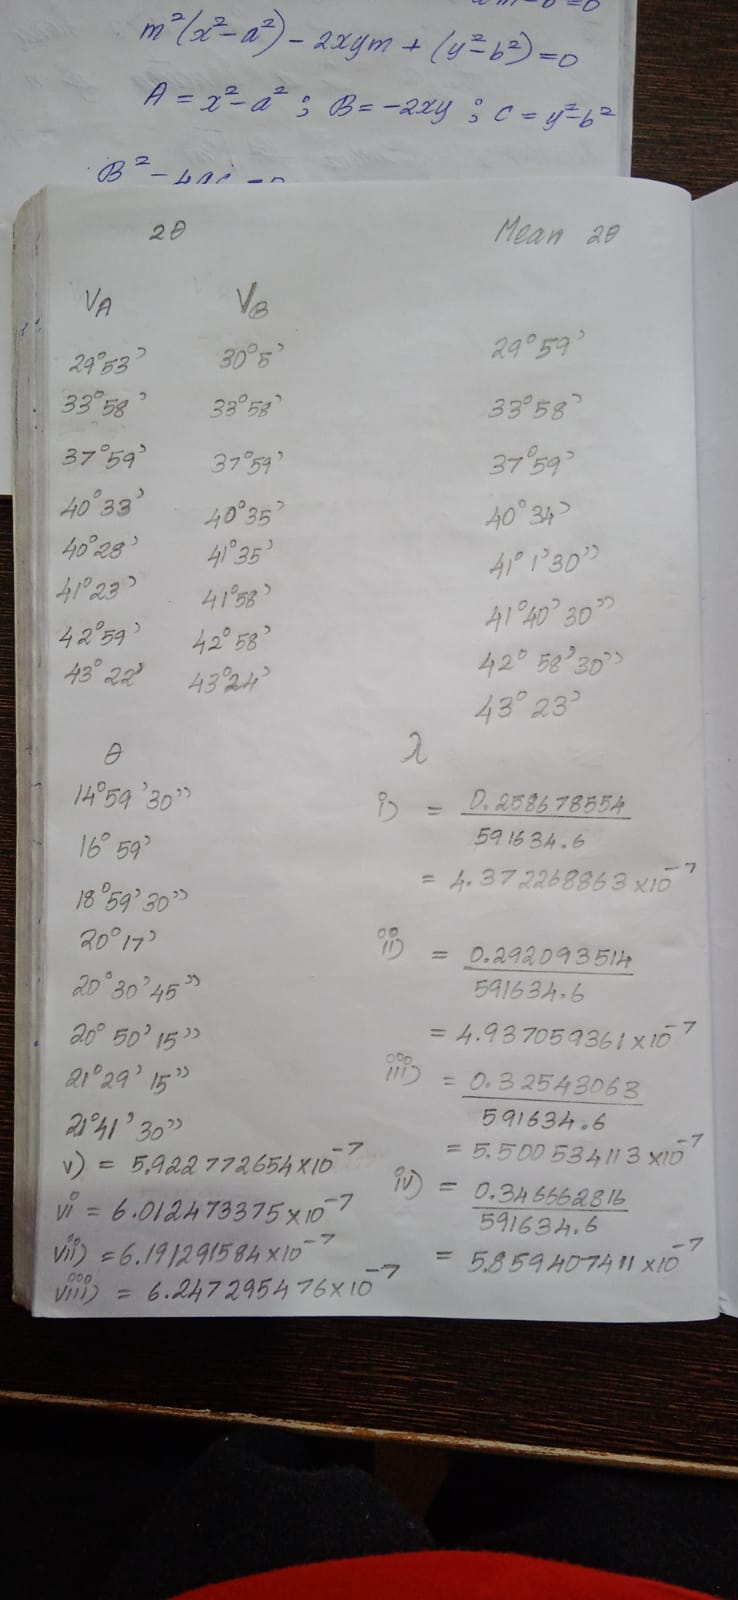 m²(x²-a²) - 2xym + (y²-b²) = 0
A = x²-a² ; B = -2xy ; C = y²-b²
2θ Mean 2θ
V_A V_B
29°53' 30°5' 29°59'
33°58' 33°58' 33°58'
37°59' 37°59' 37°59'
40°33' 40°35' 40°34'
40°28' 41°35' 41°1'30''
41°23' 41°58' 41°40'30''
42°59' 42°58' 42°58'30''
43°22' 43°24' 43°23'
θ
14°59'30''
16°59'
18°59'30''
20°17'
20°30'45''
20°50'15''
21°29'15''
21°41'30''
λ
i) = 0.258678554 / 591634.6
= 4.372268863×10⁻⁷
ii) = 0.292093514 / 591634.6
= 4.937059361×10⁻⁷
iii) = 0.32543063 / 591634.6
= 5.500534113×10⁻⁷
iv) = 0.346662816 / 591634.6
= 5.859407411×10⁻⁷
v) = 5.922772654×10⁻⁷
vi = 6.012473375×10⁻⁷
vii) = 6.191291584×10⁻⁷
viii) = 6.247295476×10⁻⁷